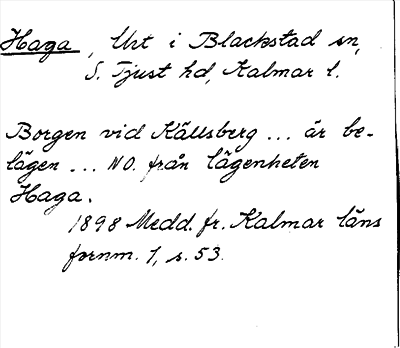 Haga, Urt i Blackstad sn,
S. Tjust hd, Kalmar l.
Borgen vid Källsberg ... är be-
lägen ... NO. från lägenheten
Haga.
1898 Medd. fr. Kalmar läns
fornm. 1, s. 53.